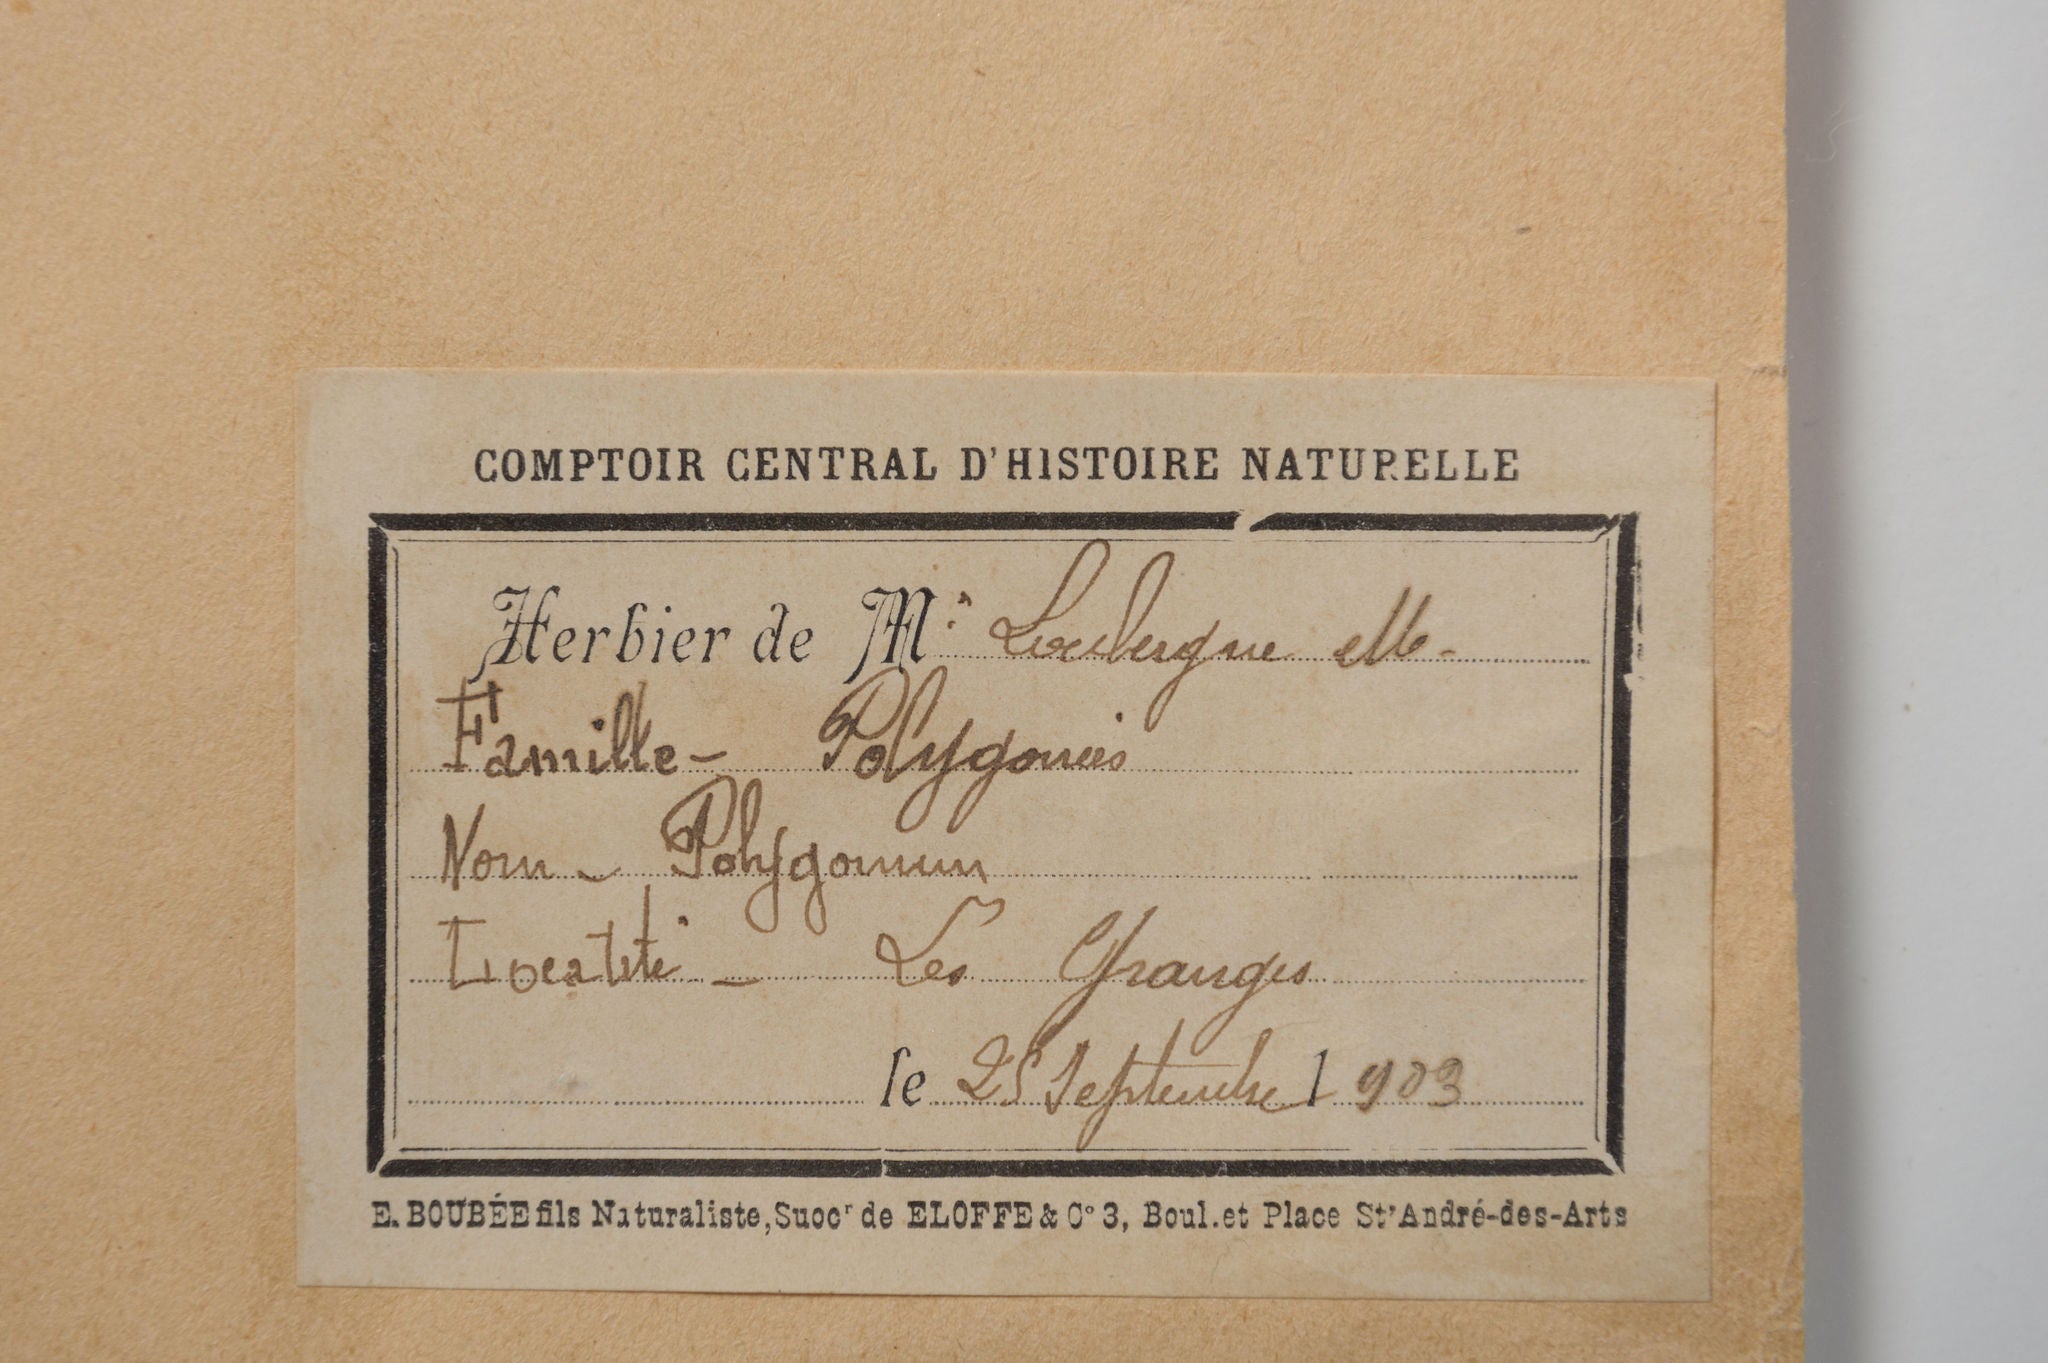 COMPTOIR CENTRAL D'HISTOIRE NATURELLE
Herbier de M. Loubergue M.
Famille - Polygonées
Nom - Polygonum
Localité - Les Granges
le 25 Septembre 1903
E. BOUBÉE fils Naturaliste, Succr de ELOFFE & Co 3, Boul. et Place St André-des-Arts